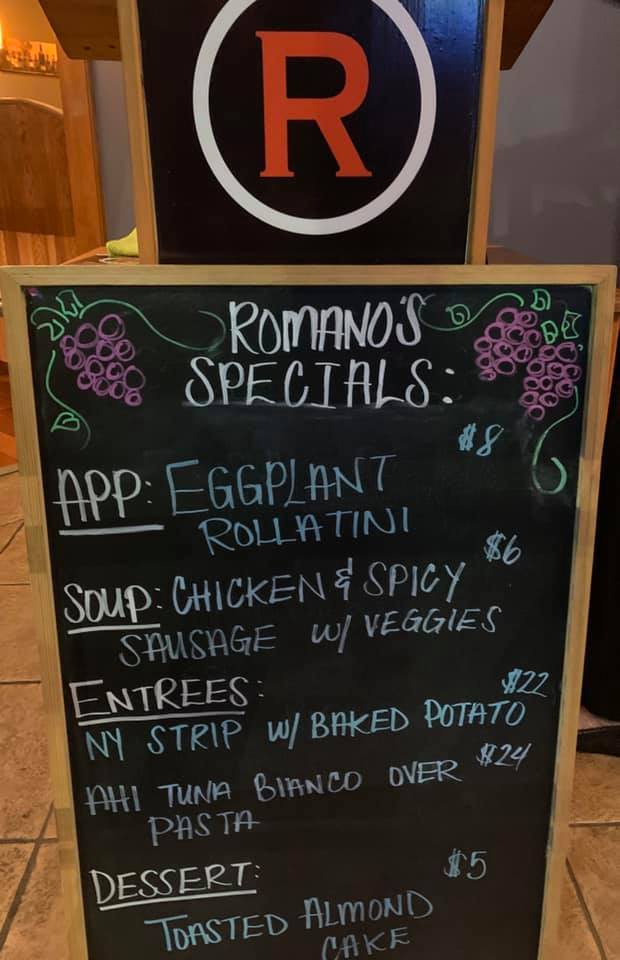 R
ROMANO'S
SPECIALS:
$8
APP: EGGPLANT
ROLLATINI
$6
SOUP: CHICKEN & SPICY
SAUSAGE W/ VEGGIES
ENTREES: $22
NY STRIP W/ BAKED POTATO
AHI TUNA BIANCO OVER $24
PASTA
DESSERT: $5
TOASTED ALMOND
CAKE